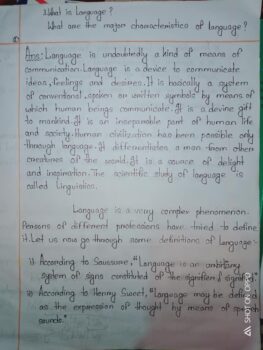 1. What is Language?
What are the major characteristics of language?
Ans: Language is undoubtedly a kind of means of
communication. Language is a device to communicate
ideas, feelings and desires. It is basically a system
of conventional, spoken or written symbols by means of
which human beings communicate. It is a devine gift
to mankind. It is an inseparable part of human life
and society. Human civilization has been possible only
through language. It differentiates a man from others
creatures of the world. It is a source of delight
and inspiration. The scientific study of language is
called Linguistics.
Language is a very complex phenomenon.
Persons of different professions have tried to define
it. Let us now go through some definitions of Language:-
i) According to Saussure, "Language is an arbitrary
system of signs constituted of the signifier & signified".
ii) According to Henry Sweet, "Language may be defined
as the expression of thought by means of speech
sounds."
SHOT ON OPPO